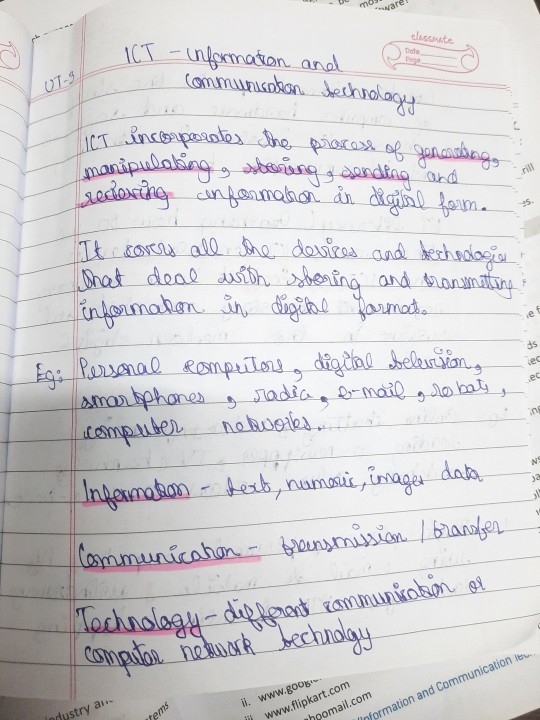 classmate
Date
Page
UT-3
ICT - information and
communication technology
ICT incorporates the process of generating,
manipulating, storing, sending and
recieving information in digital form.
It covers all the devices and technologie
that deal with storing and transmitting
information in digital format.
Eg: Personal computors, digital television,
smartphones, radio, e-mail, robots,
computer networks.
Information - text, numoric, images data
Communication - transmission / transfer
Technology - different communication or
computor network technolgy
ii. www.google
iii www.flipkart.com
hoomail.com
Information and Communication
ndustry an
stems